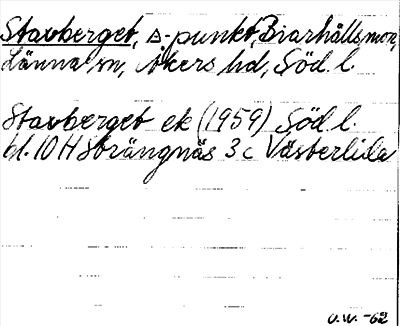 Stavberget, △-punkt, Biarhållsmon,
Länna sn, Åkers hd, Söd. l.
Stavberget ek (1959) Söd. l.
bl. 10 H Strängnäs 3 c Västerlida
O.W. -62